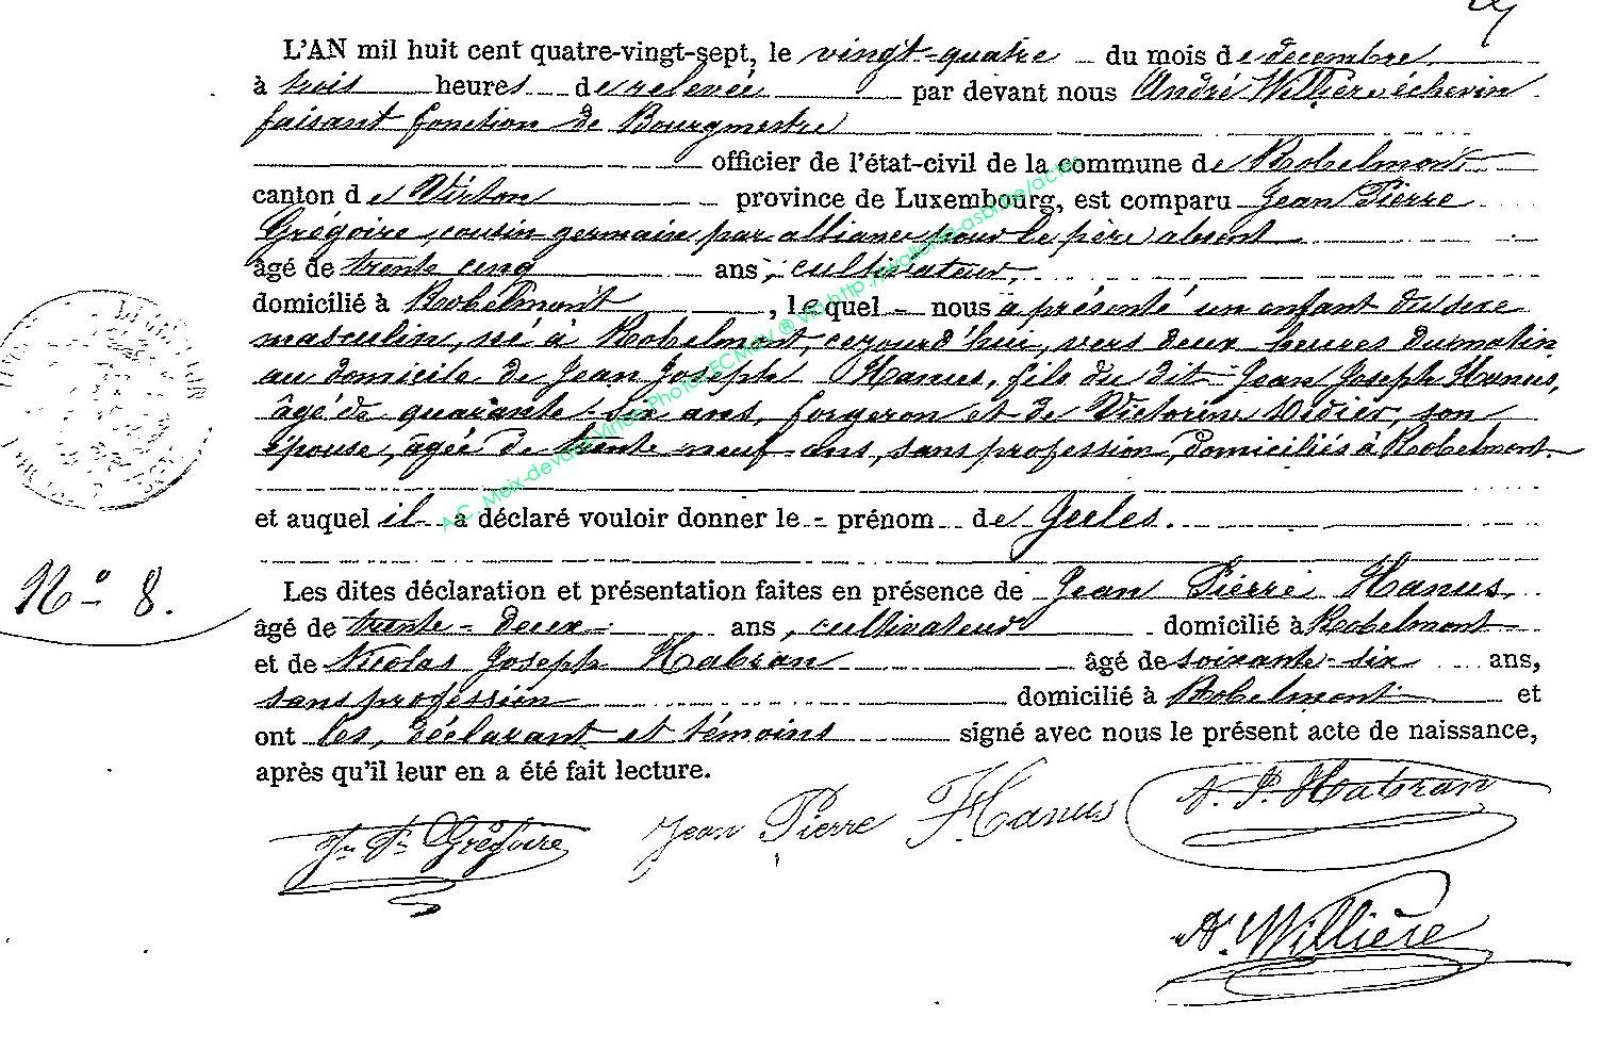 L'AN mil huit cent quatre-vingt-sept, le vingt-quatre du mois de décembre
à trois heures de relevée par devant nous André Willière échevin
faisant fonction de Bourgmestre
officier de l'état-civil de la commune de Robelmont
canton de Virton province de Luxembourg, est comparu Jean Pierre
Grégoire, cousin germain par alliance pour le père absent
âgé de trente cinq ans, cultivateur,
domicilié à Robelmont, lequel nous a présenté un enfant du sexe
masculin, né à Robelmont, cejourd'hui, vers deux heures du matin
au domicile de Jean Joseph Hanus, fils du dit Jean Joseph Hanus,
âgé de quarante-six ans, forgeron et de Victorine Didier, son
épouse, âgée de trente neuf ans, sans profession, domiciliés à Robelmont.
et auquel il a déclaré vouloir donner le prénom de Jules.
N° 8.
Les dites déclaration et présentation faites en présence de Jean Pierre Hanus,
âgé de trente-deux ans, cultivateur domicilié à Robelmont
et de Nicolas Joseph Habran âgé de soixante-six ans,
sans profession domicilié à Robelmont et
ont les, déclarant et témoins signé avec nous le présent acte de naissance,
après qu'il leur en a été fait lecture.
Jn Pre Grégoire Jean Pierre Hanus N. J. Habran
A. Willière